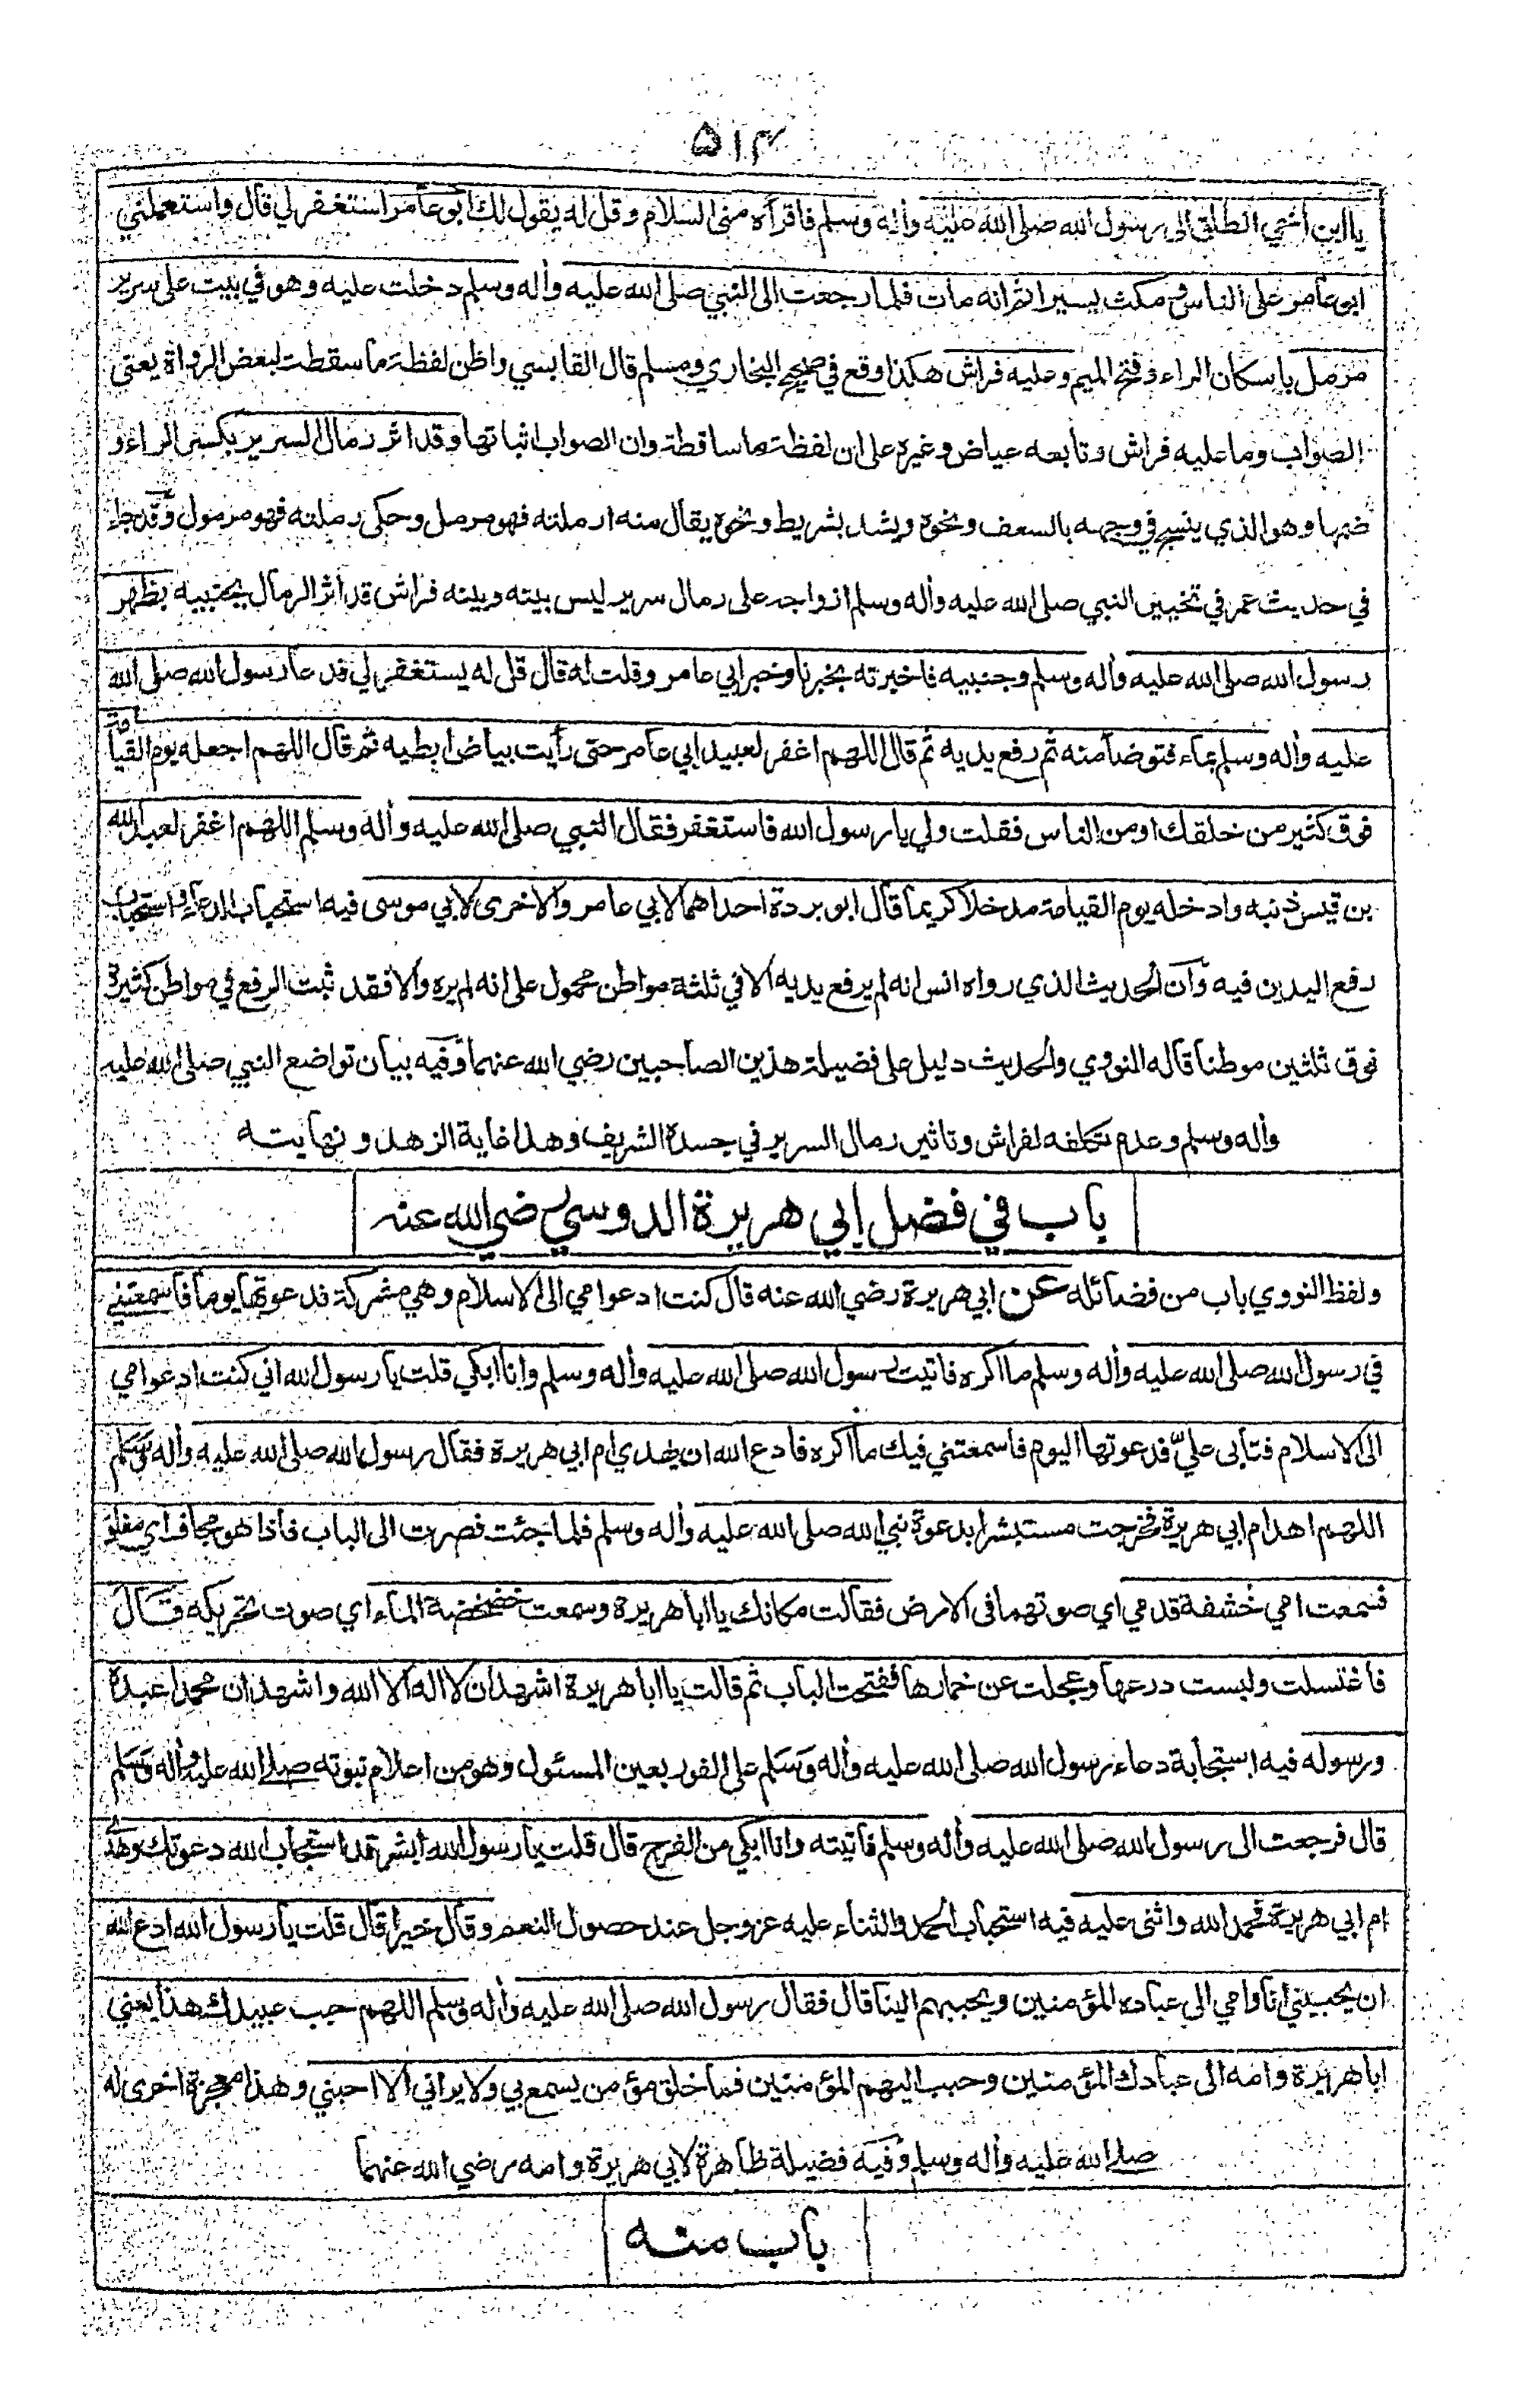 ۵۱۴
يا ابن أخي انطلق الى رسول الله صلى الله عليه وأله وسلم فاقرأه مني السلام وقل له يقول لك ابو عامر استغفر لي قال واستعملني
ابو عامر على الناس فمكث يسيرا ثم انه مات فلما رجعت الى النبي صلى الله عليه وأله وسلم دخلت عليه وهو في بيت على سرير
مرمل باسكان الراء وفتح الميم وعليه فراش هكذا وقع في صحيح البخاري ومسلم قال القابسي واظن لفظة ما سقطت لبعض الرواة يعني
الصواب وما عليه فراش وتابعه عياض وغيره على ان لفظة ما ساقطة وان الصواب اثباتها وقد اثر رمال السرير بكسر الراء و
ضمها وهو الذي ينسج في وجهه بالسعف ونحوه ويشد بشريط ونحوه يقال منه ارملته فهو مرمل وحكى رملته فهو مرمول وقد جاء
في حديث عمر في تخيير النبي صلى الله عليه وأله وسلم ازواجه على رمال سرير ليس بينه وبينه فراش قد اثر الرمال بجنبيه بظهر
رسول الله صلى الله عليه وأله وسلم وجنبيه فاخبرته بخبرنا وخبر ابي عامر وقلت له قال قل له يستغفر لي فدعا رسول الله صلى الله
عليه وأله وسلم بماء فتوضأ منه ثم رفع يديه ثم قال اللهم اغفر لعبيد ابي عامر حتى رأيت بياض ابطيه ثم قال اللهم اجعله يوم القيامة
فوق كثير من خلقك او من الناس فقلت ولي يا رسول الله فاستغفر فقال النبي صلى الله عليه وأله وسلم اللهم اغفر لعبد الله
بن قيس ذنبه وادخله يوم القيامة مدخلا كريما قال ابو بردة احداهما لابي عامر والاخرى لابي موسى فيه استحباب الدعاء واستحباب
رفع اليدين فيه وان الحديث الذي رواه انس انه لم يرفع يديه الا في ثلثة مواطن محمول على انه لم يره والا فقد ثبت الرفع في مواطن كثيرة
فوق ثلثين موطنا قاله النووي والحديث دليل على فضيلة هذين الصاحبين رضي الله عنهما وفيه بيان تواضع النبي صلى الله عليه
وأله وسلم وعدم تكلفه لفراش وتاثير رمال السرير في جسده الشريف وهذا غاية الزهد ونهايته
باب في فضل ابي هريرة الدوسي رضي الله عنه
ولفظ النووي باب من فضائله عن ابي هريرة رضي الله عنه قال كنت ادعو امي الى الاسلام وهي مشركة فدعوتها يوما فاسمعتني
في رسول الله صلى الله عليه وأله وسلم ما اكره فاتيت رسول الله صلى الله عليه وأله وسلم وانا ابكي قلت يا رسول الله اني كنت ادعو امي
الى الاسلام فتأبى عليّ فدعوتها اليوم فاسمعتني فيك ما اكره فادع الله ان يهدي ام ابي هريرة فقال رسول الله صلى الله عليه وأله وسلم
اللهم اهد ام ابي هريرة فخرجت مستبشرا بدعوة نبي الله صلى الله عليه وأله وسلم فلما جئت فصرت الى الباب فاذا هو مجاف اي مغلق
فسمعت امي خشفة قدمي اي صوتهما في الارض فقالت مكانك يا ابا هريرة وسمعت خضخضة الماء اي صوت تحريكه قال
فاغتسلت ولبست درعها وعجلت عن خمارها ففتحت الباب ثم قالت يا ابا هريرة اشهد ان لا اله الا الله واشهد ان محمدا عبده
ورسوله فيه استجابة دعاء رسول الله صلى الله عليه وأله وسلم على الفور بعين المسئول وهو من اعلام نبوته صلى الله عليه وأله وسلم
قال فرجعت الى رسول الله صلى الله عليه وأله وسلم فأتيته وانا ابكي من الفرح قال قلت يا رسول الله ابشر قد استجاب الله دعوتك وهدى
ام ابي هريرة فحمد الله واثنى عليه فيه استحباب الحمد والثناء عليه عز وجل عند حصول النعم وقال خيرا قال قلت يا رسول الله ادع الله
ان يحببني انا وامي الى عباده المؤمنين ويحببهم الينا قال فقال رسول الله صلى الله عليه وأله وسلم اللهم حبب عبيدك هذا يعني
ابا هريرة وامه الى عبادك المؤمنين وحبب اليهم المؤمنين فما خلق مؤمن يسمع بي ولا يراني الا احبني وهذا معجزة اخرى له
صلى الله عليه وأله وسلم وفيه فضيلة ظاهرة لابي هريرة وامه رضي الله عنهما
باب منه